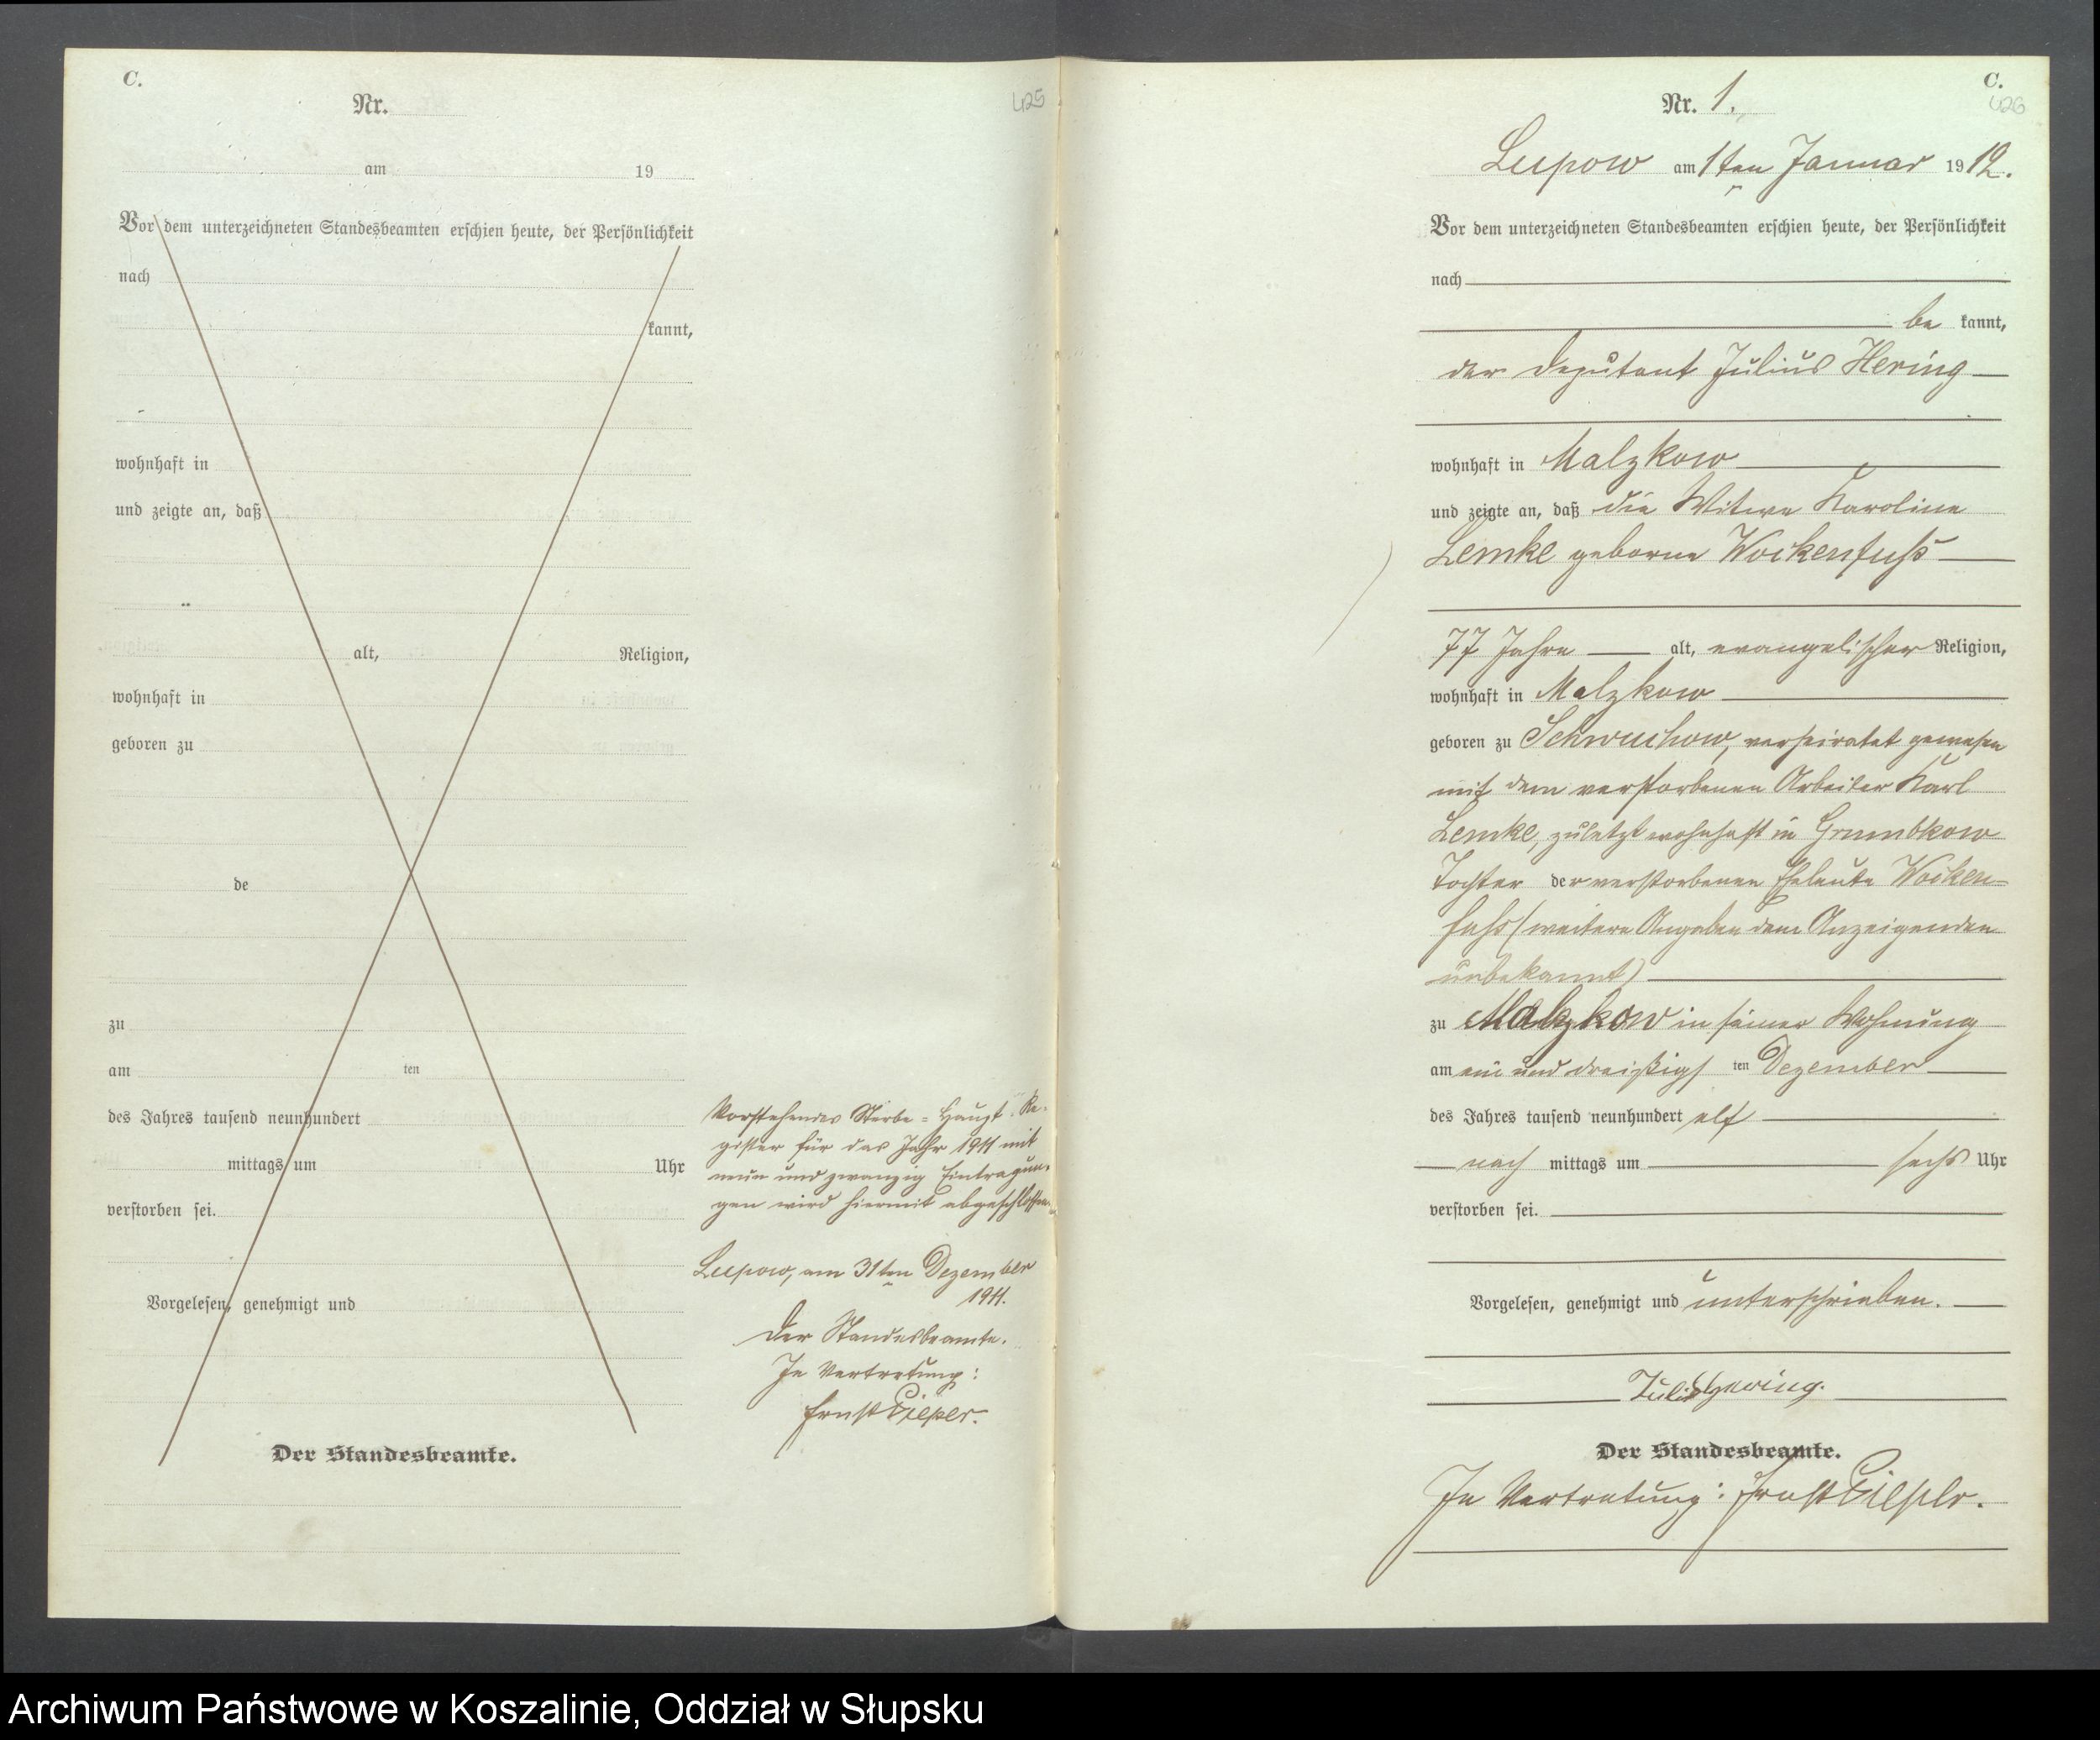 C.
Nr.
425
am 19
Vor dem unterzeichneten Standesbeamten erschien heute, der Persönlichkeit
nach
kannt,
wohnhaft in
und zeigte an, daß
alt, Religion,
wohnhaft in
geboren zu
de
zu
am ten
des Jahres tausend neunhundert
mittags um Uhr
verstorben sei.
Vorgelesen, genehmigt und
Der Standesbeamte.
Vorstehendes Sterbe-Haupt-Re-
gister für das Jahr 1911 mit
neun und zwanzig Eintragun-
gen wird hiermit abgeschlossen.
Lupow, am 31ten Dezember
1911.
Der Standesbeamte.
In Vertretung:
Ernst Pieper.
C.
426
Nr. 1.
Lupow am 1ten Januar 1912.
Vor dem unterzeichneten Standesbeamten erschien heute, der Persönlichkeit
nach
be kannt,
der Deputant Julius Hering
wohnhaft in Malzkow
und zeigte an, daß die Witwe Karoline
Lemke geborne Wockenfuß
77 Jahre alt, evangelischer Religion,
wohnhaft in Malzkow
geboren zu Schwuchow, verheiratet gewesen
mit dem verstorbenen Arbeiter Karl
Lemke, zuletzt wohnhaft in Grumbkow
Tochter der verstorbenen Eheleute Wocken-
fuß (weitere Angaben dem Anzeigenden
unbekannt)
zu Malzkow in seiner Wohnung
am ein und dreißigs ten Dezember
des Jahres tausend neunhundert elf
nach mittags um sechs Uhr
verstorben sei.
Vorgelesen, genehmigt und unterschrieben.
Julius Hering.
Der Standesbeamte.
In Vertretung: Ernst Pieper.
Archiwum Państwowe w Koszalinie, Oddział w Słupsku